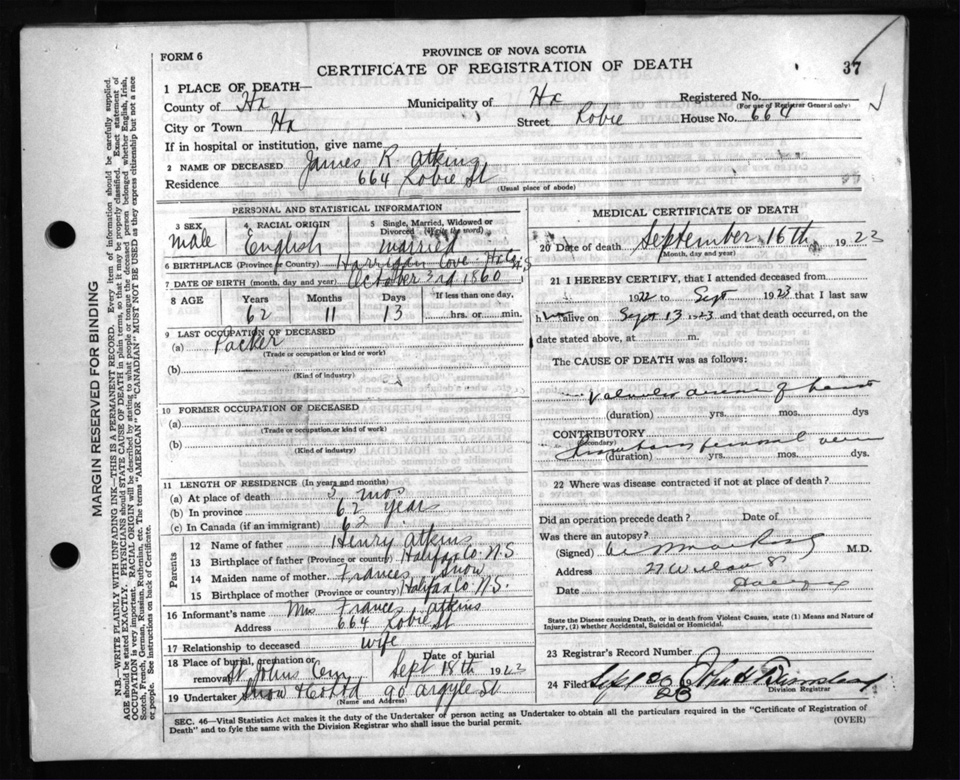 FORM 6
PROVINCE OF NOVA SCOTIA
CERTIFICATE OF REGISTRATION OF DEATH
37
1 PLACE OF DEATH—
County of Hx Municipality of Hx Registered No.
(For use of Registrar General only)
City or Town Hx Street Robie House No. 664
If in hospital or institution, give name
2 NAME OF DECEASED James R. Atkins
Residence 664 Robie St
(Usual place of abode)
PERSONAL AND STATISTICAL INFORMATION
3 SEX 4 RACIAL ORIGIN 5 Single, Married, Widowed or
Divorced (Write the word)
Male English married
6 BIRTHPLACE (Province or Country) Harrigan Cove Hx Co. N.S
7 DATE OF BIRTH (month, day and year) October 3rd 1860
8 AGE Years Months Days If less than one day,
62 11 13 hrs. or min.
9 LAST OCCUPATION OF DECEASED
(a) Packer
(Trade or occupation or kind or work)
(b)
(Kind of industry)
10 FORMER OCCUPATION OF DECEASED
(a)
(Trade or occupation or kind of work)
(b)
(Kind of industry)
11 LENGTH OF RESIDENCE (In years and months)
(a) At place of death 3 mos
(b) In province 62 years
(c) In Canada (if an immigrant) 62
Parents
12 Name of father Henry Atkins
13 Birthplace of father (Province or country) Halifax Co. N.S
14 Maiden name of mother Frances Snow
15 Birthplace of mother (Province or country) Halifax Co N.S.
16 Informant's name Mrs Frances Atkins
Address 664 Robie St
17 Relationship to deceased wife
18 Place of burial, cremation or Date of burial
removal St Johns Cem Sept 18th 1923
19 Undertaker Snow & Co Ltd 90 Argyle St
(Name and Address)
MEDICAL CERTIFICATE OF DEATH
20 Date of death September 16th 1923
(Month, day and year)
21 I HEREBY CERTIFY, that I attended deceased from
1922 to Sept 1923 that I last saw
h alive on Sept 13 1923 and that death occurred, on the
date stated above, at m.
The CAUSE OF DEATH was as follows:
Valvular disease of heart
(duration) yrs. mos. dys
CONTRIBUTORY
(Secondary)
(duration) yrs. mos. dys.
22 Where was disease contracted if not at place of death?
Did an operation precede death? Date of
Was there an autopsy?
(Signed) M.D.
Address
Date
State the Disease causing Death, or in death from Violent Causes, state (1) Means and Nature of
Injury, (2) whether Accidental, Suicidal or Homicidal.
23 Registrar's Record Number
24 Filed Sept 20 23 John H
Division Registrar
SEC. 46—Vital Statistics Act makes it the duty of the Undertaker or person acting as Undertaker to obtain all the particulars required in the "Certificate of Registration of
Death" and to fyle the same with the Division Registrar who shall issue the burial permit.
(OVER)
MARGIN RESERVED FOR BINDING
N.B.—WRITE PLAINLY WITH UNFADING INK—THIS IS A PERMANENT RECORD. Every item of information should be carefully supplied.
AGE should be stated EXACTLY. PHYSICIANS should STATE CAUSE OF DEATH in plain terms, so that it may be properly classified. Exact statement of
OCCUPATION is very important. RACIAL ORIGIN will be described by stating to what people or tongue the deceased person belonged whether English, Irish,
Scotch, French, German, Russian, Ruthenian, etc. The terms "AMERICAN" OR "CANADIAN" MUST NOT BE USED as they express citizenship but not a race
or people. See instructions on back of Certificate.